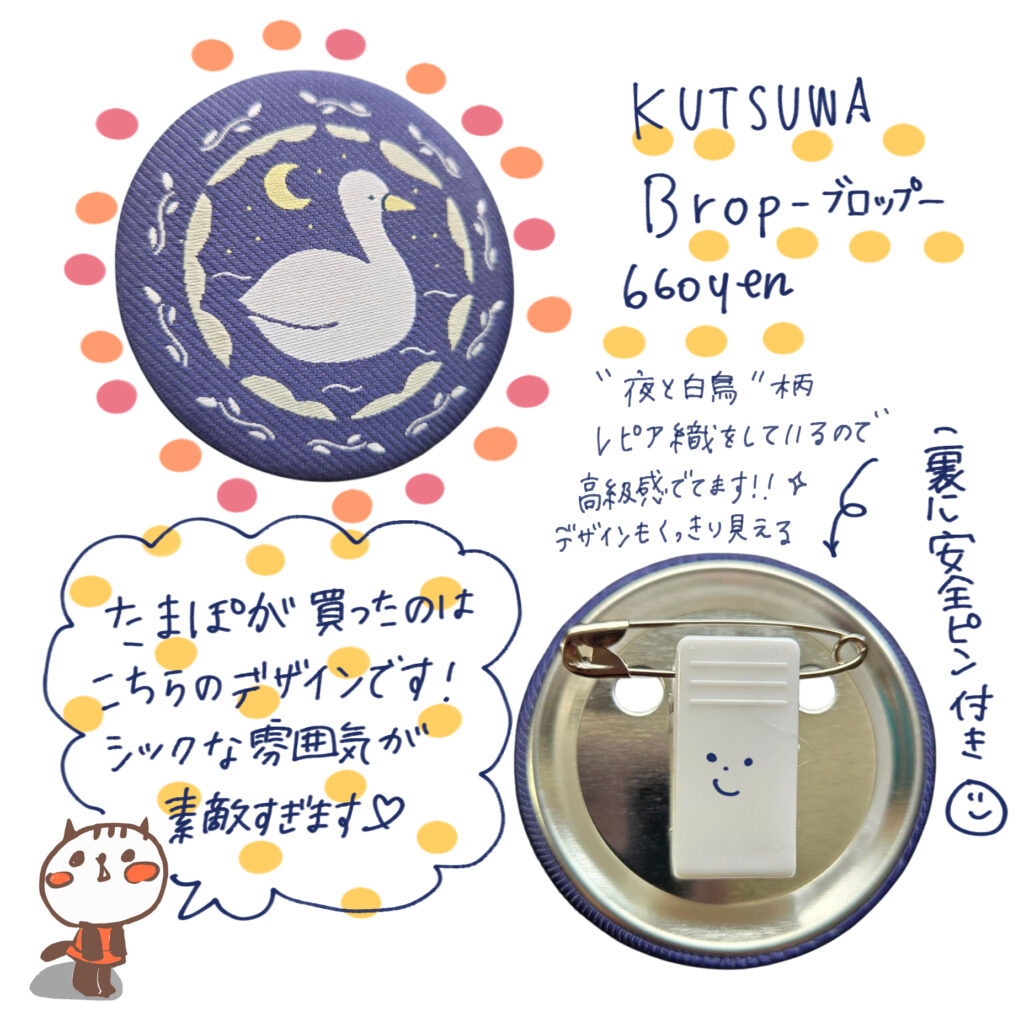 KUTSUWA
Brop-ブロップ-
660yen
"夜と白鳥"柄
レピア織をしているので
高級感でてます!!
デザインもくっきり見える
裏に安全ピン付き
たまぽが買ったのは
こちらのデザインです!
シックな雰囲気が
素敵すぎます♡